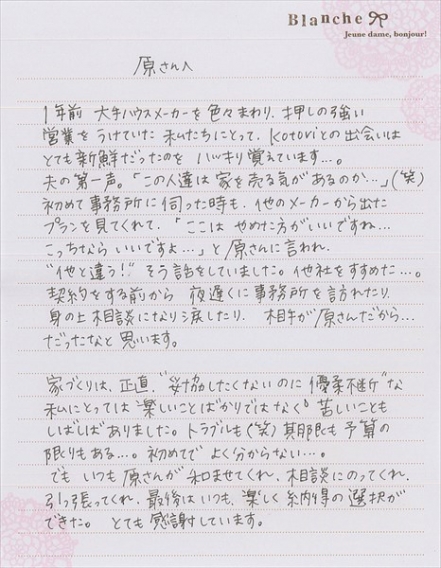 Blanche
Jeune dame, bonjour!
原さんへ
1年前 大手ハウスメーカーを色々まわり、押しの強い
営業をうけていた 私たちにとって、Kotoriとの出会いは
とても新鮮だったのを ハッキリ覚えています…。
夫の第一声。「この人達は 家を売る気があるのか…」(笑)
初めて事務所に伺った時も、他のメーカーから出た
プランを見てくれて、「ここは やめた方がいいですね…
こっちなら いいですよ…」と原さんに言われ、
"他と違う!" そう話をしていました。他社をすすめた…。
契約をする前から 夜遅くに事務所を訪れたり、
身の上相談になり涙したり、 相手が原さんだから…
だったなと思います。
家づくりは、正直、"妥協したくないのに 優柔不断"な
私にとっては 楽しいことばかりではなく 苦しいことも
しばしばありました。トラブルも(笑) 期限も 予算の
限りもある…。初めてで よく分からない…。
でも いつも 原さんが 和ませてくれ、相談にのってくれ、
引っ張ってくれ、最後はいつも、楽しく 納得の選択が
できた。 とても感謝しています。